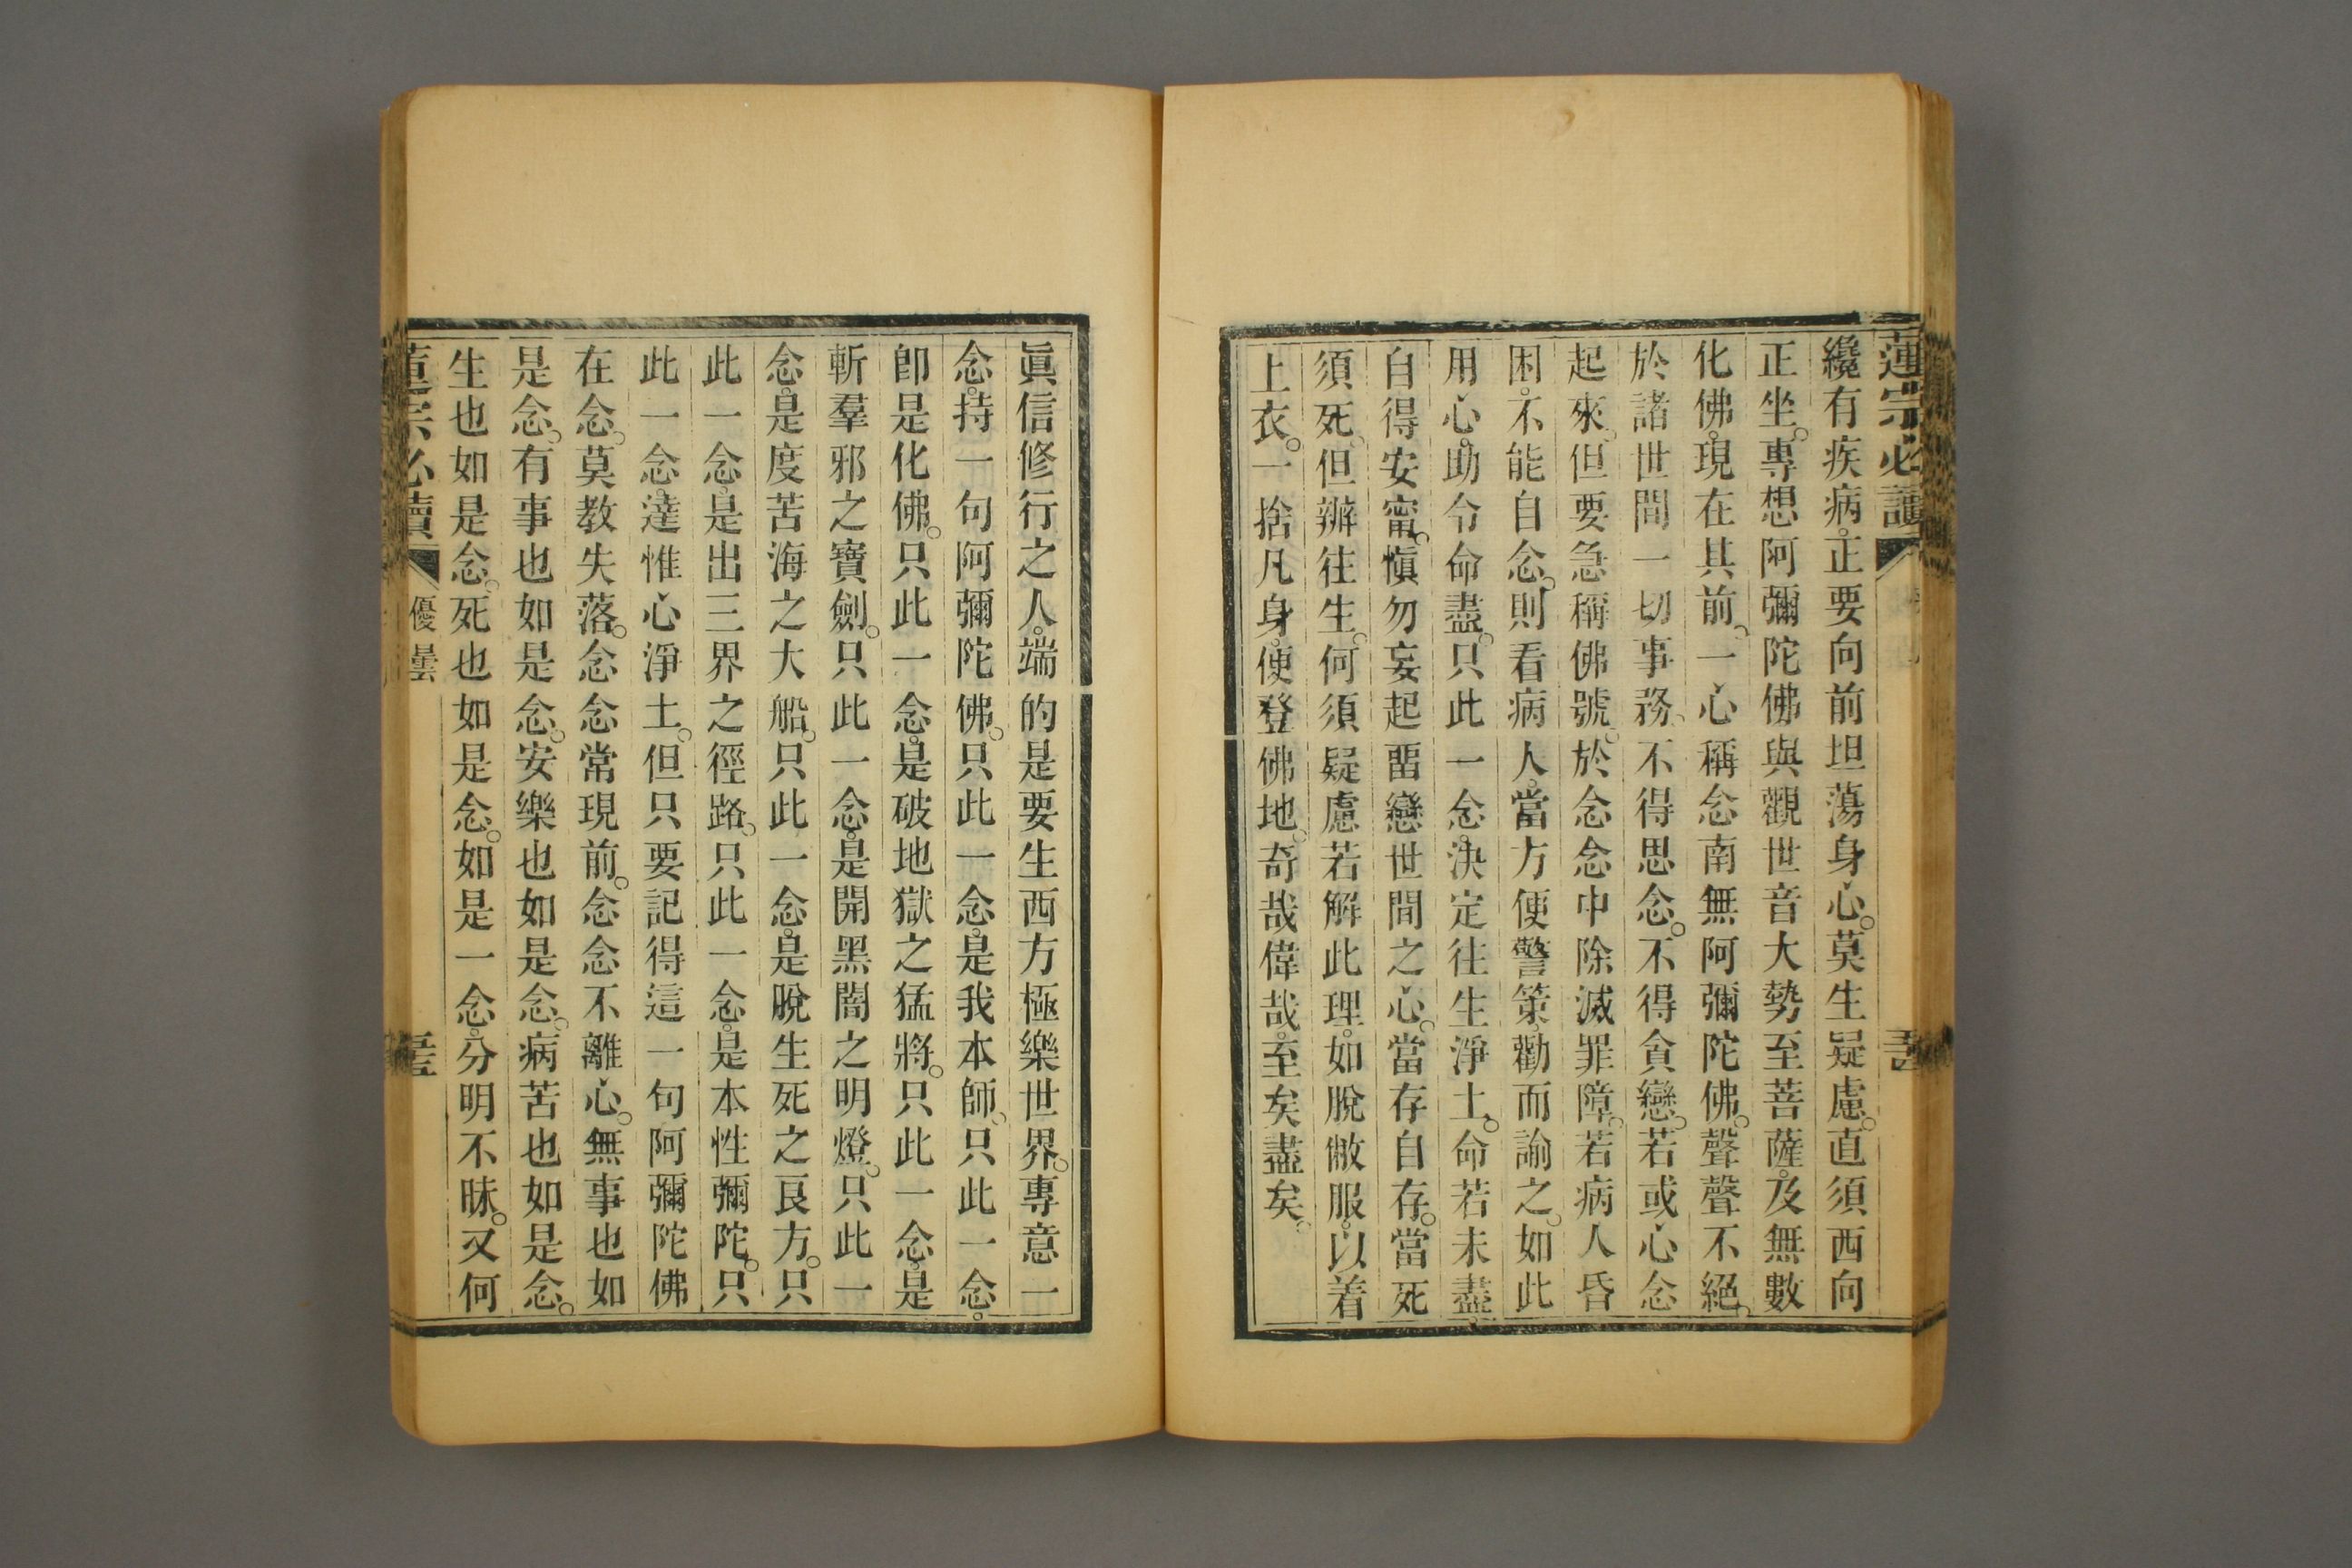 蓮宗必讀
纔有疾病。正要向前坦蕩身心。莫生疑慮。直須西向
正坐。專想阿彌陀佛與觀世音大勢至菩薩。及無數
化佛。現在其前。一心稱念南無阿彌陀佛。聲聲不絕。
於諸世間一切事務。不得思念。不得貪戀。若或心念
起來。但要急稱佛號。於念念中除滅罪障。若病人昏
困。不能自念。則看病人。當方便警策。勸而諭之。如此
用心。助令命盡。只此一念。決定往生淨土。命若未盡。
自得安甯。愼勿妄起畱戀世間之心。當存自存。當死
須死。但辦往生。何須疑慮。若解此理。如脫敝服。以着
上衣。一捨凡身。便登佛地。奇哉偉哉。至矣盡矣。
眞信修行之人。端的是要生西方極樂世界。專意一
念。持一句阿彌陀佛。只此一念。是我本師。只此一念。
卽是化佛。只此一念。是破地獄之猛將。只此一念。是
斬羣邪之寶劍。只此一念。是開黑闇之明燈。只此一
念。是度苦海之大船。只此一念。是脫生死之良方。只
此一念。是出三界之徑路。只此一念。是本性彌陀。只
此一念。達惟心淨土。但只要記得這一句阿彌陀佛
在念。莫教失落。念念常現前。念念不離心。無事也如
是念。有事也如是念。安樂也如是念。病苦也如是念。
生也如是念。死也如是念。如是一念。分明不昧。又何
蓮宗必讀
優曇